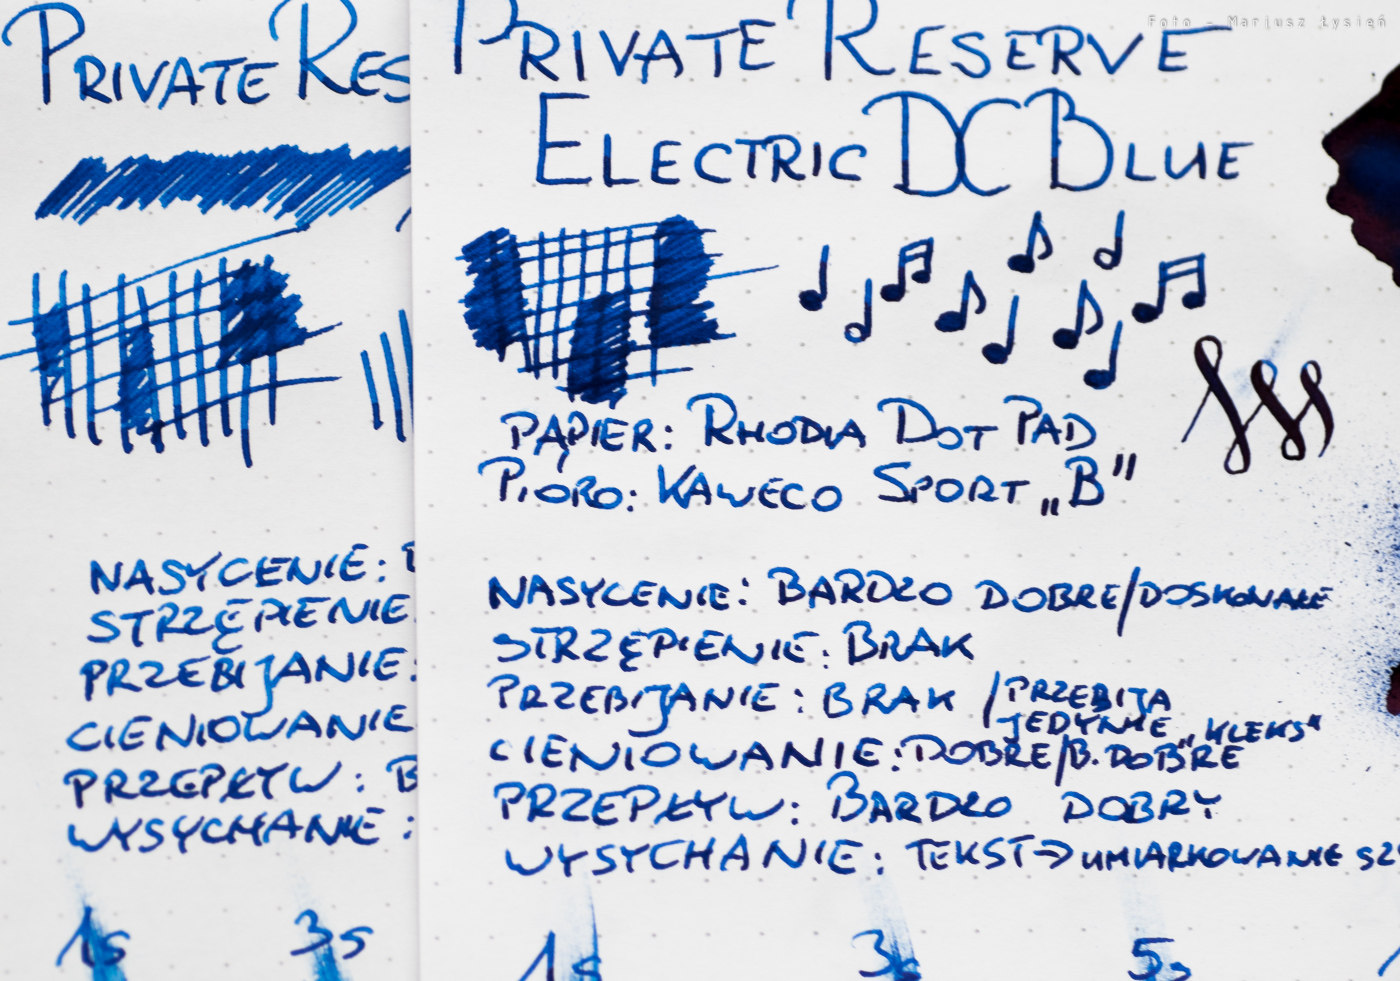 Foto - Mariusz Łysień
PRIVATE RES
NASYCENIE:
STRZĘPIENIE
PRZEBIJANIE:
CIENIOWANIE
PRZEPŁYW: B
WYSYCHANIE:
1s 3s
PRIVATE RESERVE
ELECTRIC DC BLUE
PAPIER: RHODIA DOT PAD
PIÓRO: KAWECO SPORT „B”
NASYCENIE: BARDZO DOBRE/DOSKONAŁE
STRZĘPIENIE: BRAK
PRZEBIJANIE: BRAK /PRZEBIJA
JEDYNIE „KLEKS”
CIENIOWANIE: DOBRE/B. DOBRE
PRZEPŁYW: BARDZO DOBRY
WYSYCHANIE: TEKST→UMIARKOWANIE SZ
1s 3s 5s